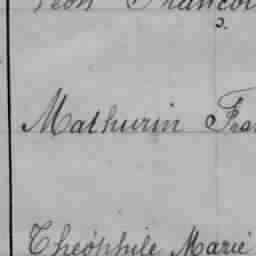 Léon Francoi
Mathurin Fra
Théophile Marie